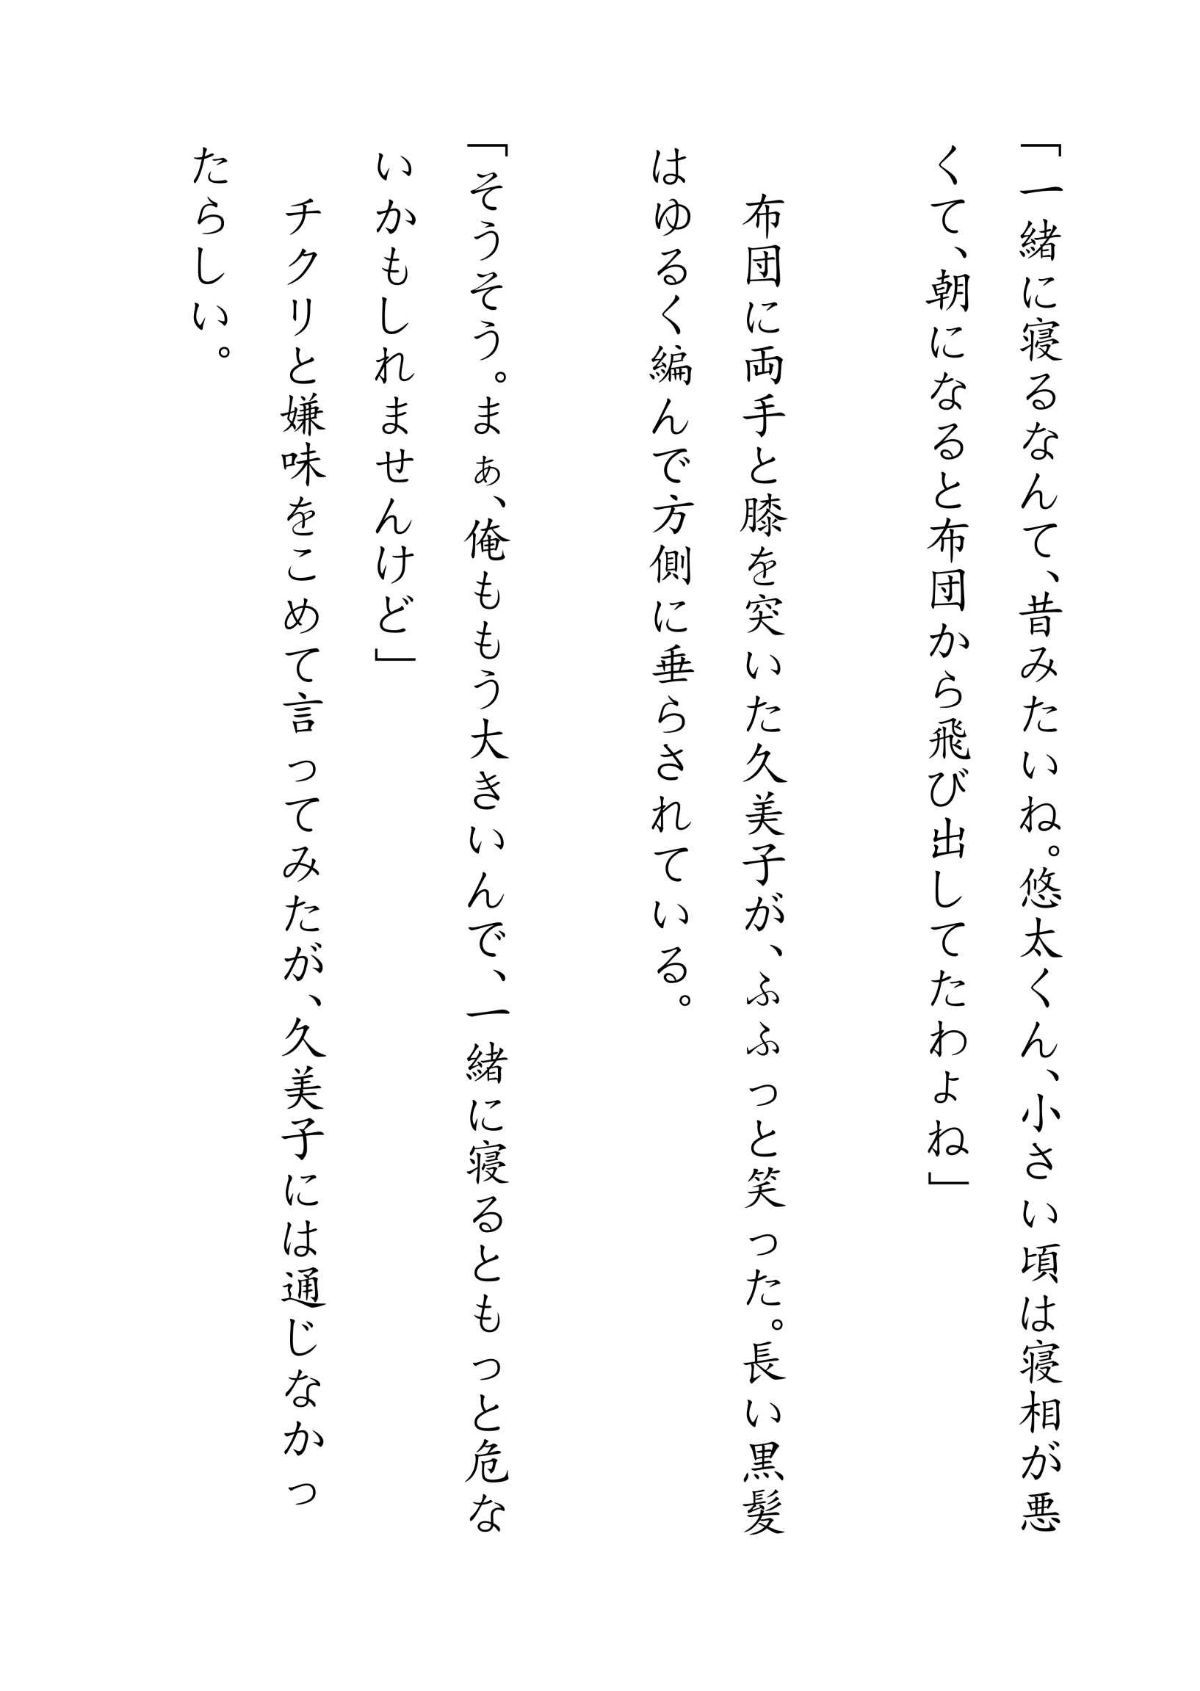 「一緒に寝るなんて、昔みたいね。悠太くん、小さい頃は寝相が悪
くて、朝になると布団から飛び出してたわよね」
布団に両手と膝を突いた久美子が、ふふっと笑った。長い黒髪
はゆるく編んで方側に垂らされている。
「そうそう。まぁ、俺ももう大きいんで、一緒に寝るともっと危な
いかもしれませんけど」
チクリと嫌味をこめて言ってみたが、久美子には通じなかっ
たらしい。